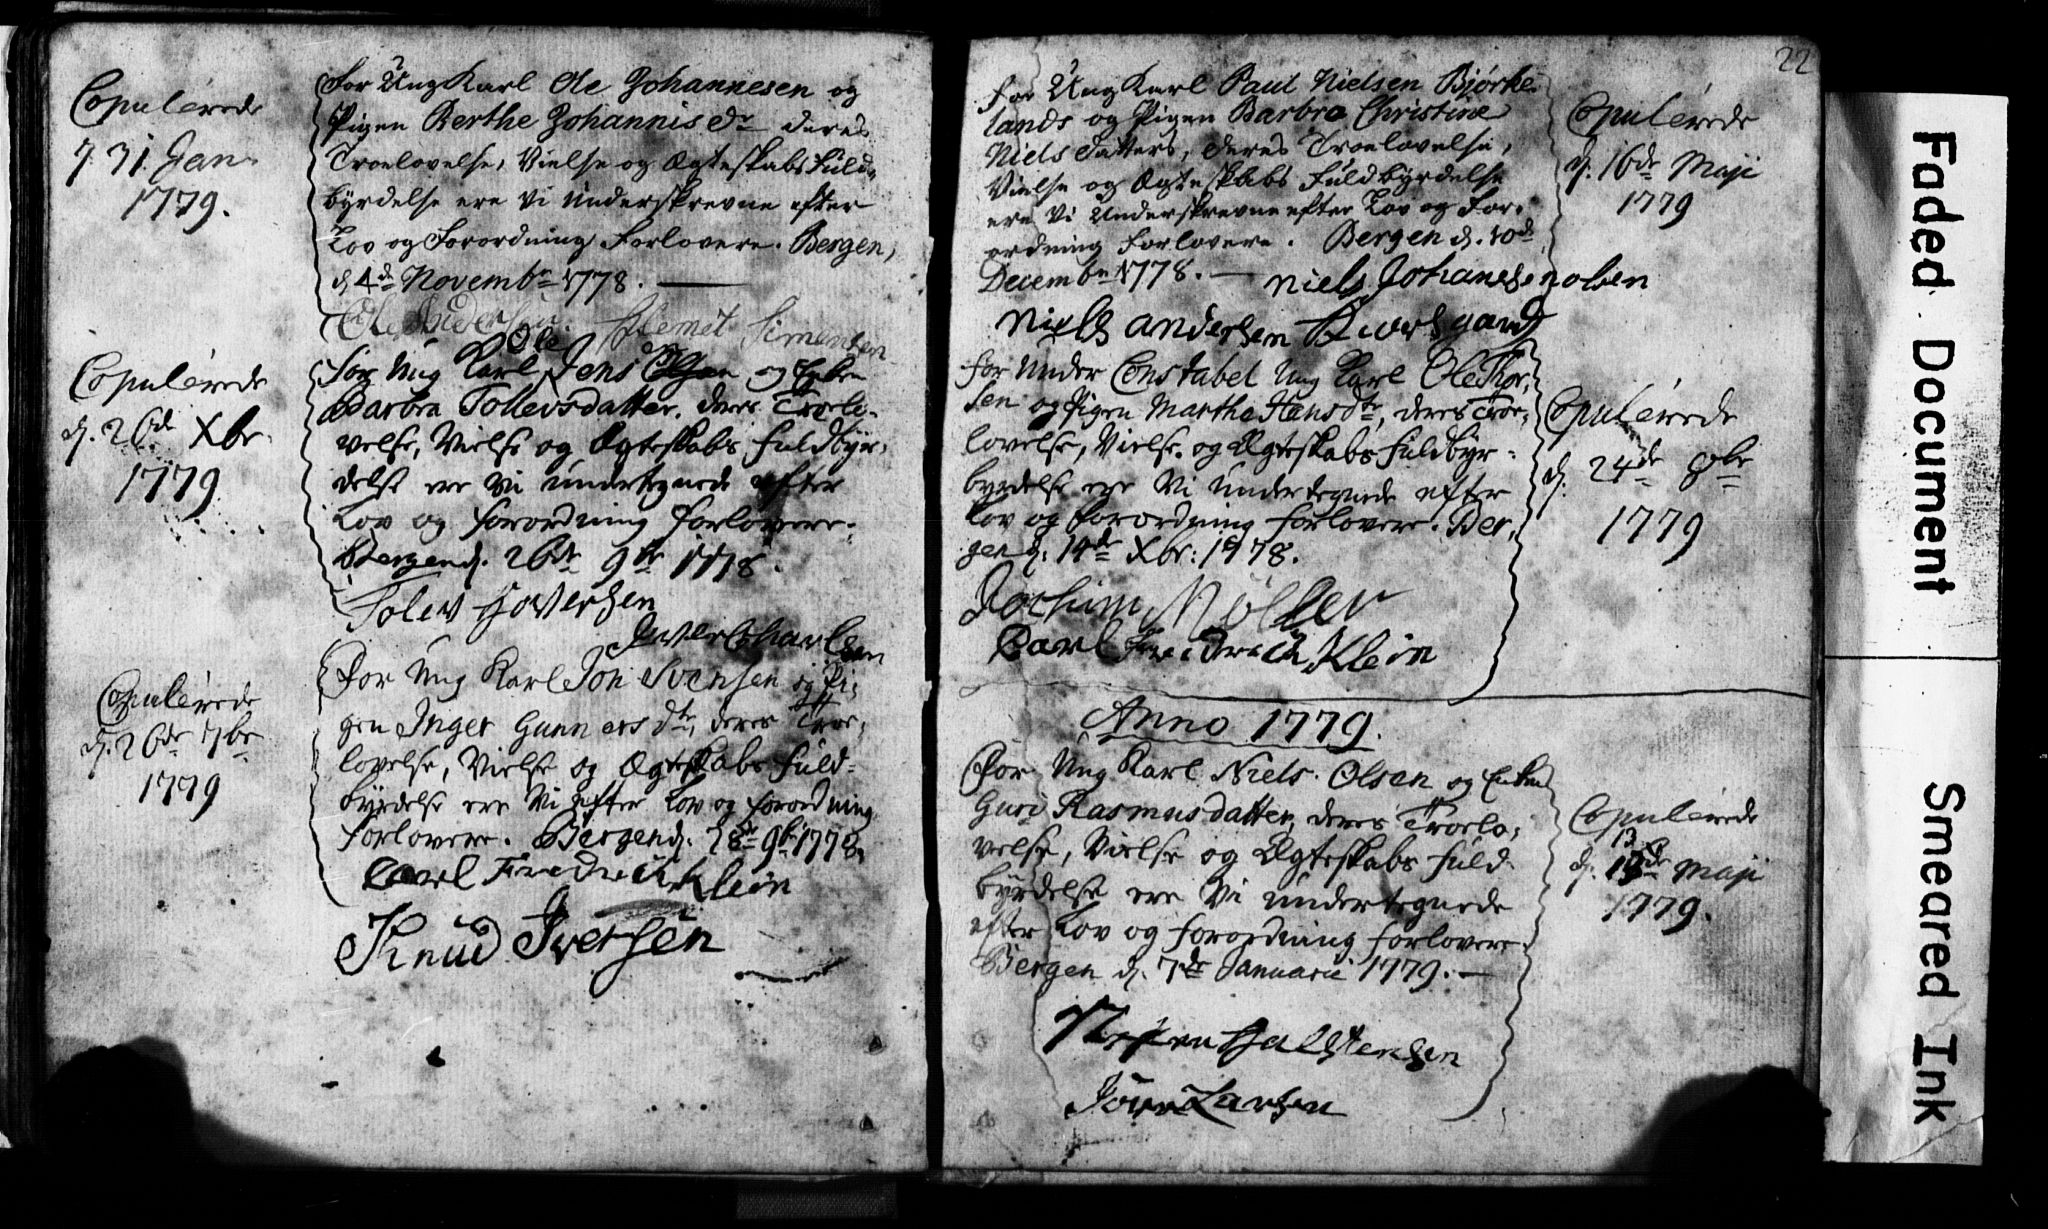 Copulerede
d. 31 Jan.
1779.
For Ung Karl Ole Johannesen og
Pigen Berthe Johannisdr deres
Troelovelse, Vielse og Ægteskabs Fuld-
byrdelse ere Vi Underskrevne efter
Lov og Forordning Forlovere. Bergen,
d 4de Novembr 1778.
Ole Andersen. Clemet Simensen
Copulerede
d. 26de Xbr.
1779
Ole
For Ung Karl Jens og Enken
Barbra Tollevsdatter, deres Troelo-
velse, Vielse og Ægteskabs Fuldbyr-
delse ere Vi undertegnede efter
Lov og Forordning Forlovere.
Bergen d. 26de 9br 1778.
Tolew Goversen
Iver Charlsen
Copulerede
d. 26de 7br
1779
For Ung Karl Jon Svensen og Pi-
gen Inger Gunnersdtr, deres Troe-
lovelse, Vielse og Ægteskabs Fuld-
byrdelse ere Vi efter Lov og Forordning
Forlovere. Bergen d. 28de 9br 1778.
Carl Fredrich Klein
Knud Iversen
22
For Ung Karl Paul Nielsen Bjørke-
lands og Pigen Barbra Christine
Niels Datters, deres Troelovelse,
Vielse og Ægteskabs Fuldbyrdelse
ere Vi Underskrevne efter Lov og For-
ordning Forlovere. Bergen d. 10de
Decembr 1778. Niels Johannesen olsen
Niels andersen
Copulerede
d. 16de Maji
1779
For Under Constabel Ung Karl Ole Thor-
sen og Pigen Martha Hansdtr, deres Troe-
lovelse, Vielse og Ægteskabs Fuldbyr-
byrdelse ere Vi undertegnede efter
Lov og Forordning Forlovere. Ber-
gen d. 14de Xbr: 1778.
Jochim Möller
Carl Fredrich Klein
Copulerede
d. 24de 8br
1779
Anno 1779.
For Ung Karl Niels Olsen og Enken
Guri Rasmusdatter, deres Troelo-
velse, Vielse og Ægteskabs Fuld-
byrdelse ere Vi undertegnede
efter Lov og Forordning Forlovere.
Bergen d. 7de Januarii 1779.
Halstensen
Larsen
Copulerede
13
d. 13de Maji
1779.
Faded Document
Smeared Ink